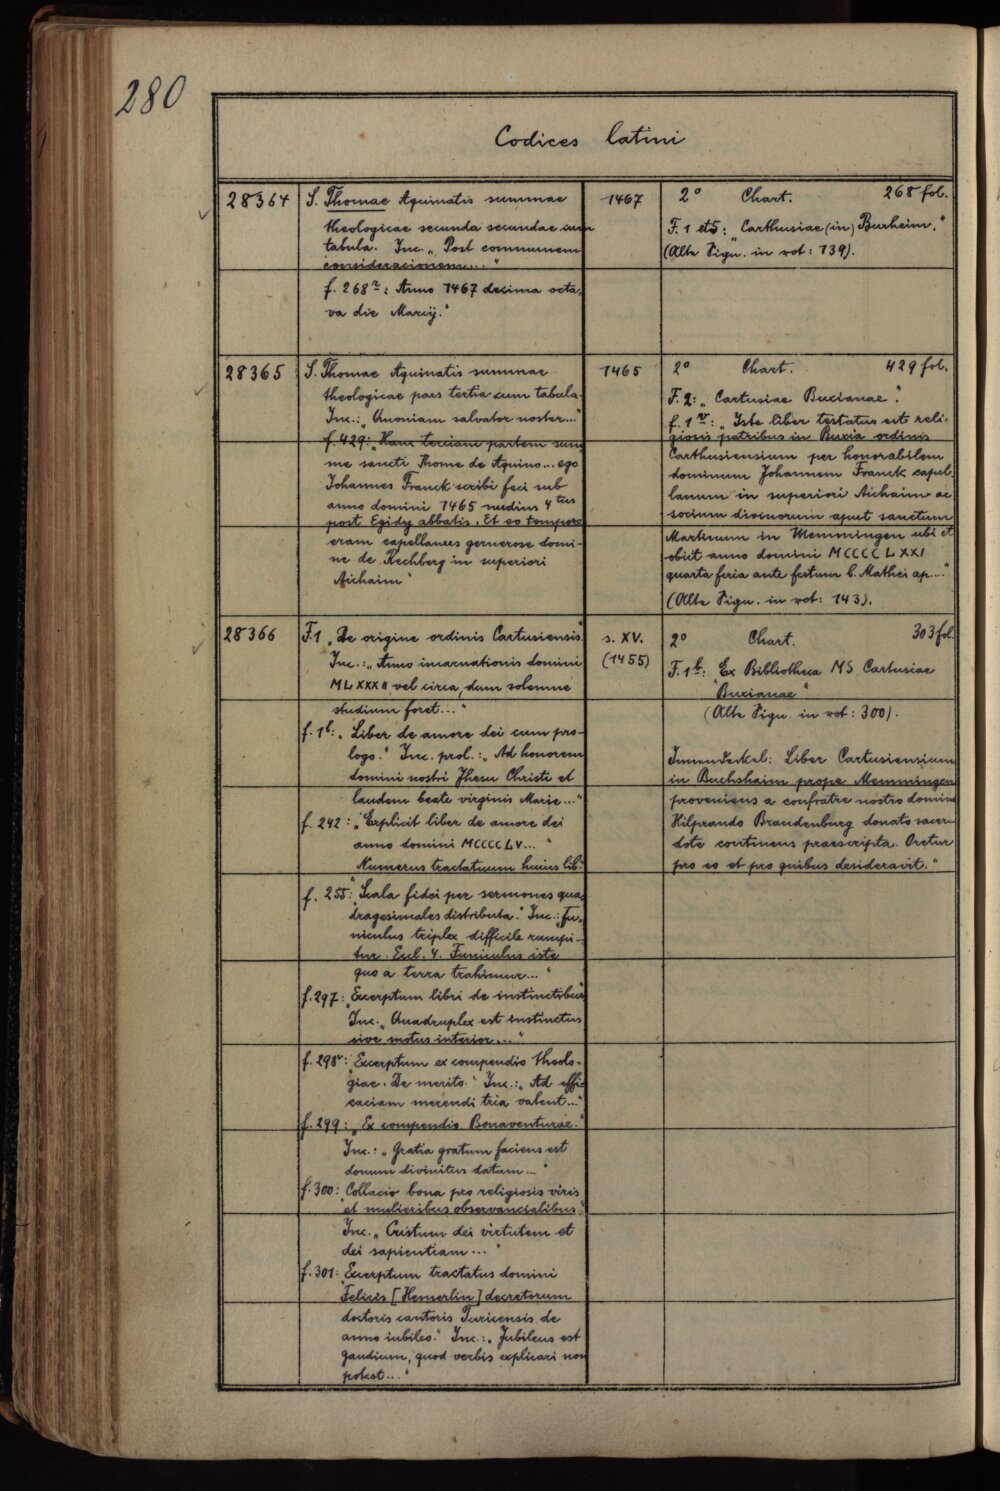 280
Codices latini
28364
S. Thomae Aquinatis summae
theologicae secunda secundae cum
tabula. Inc. „Post communem
consideracionem..."
f. 268r: Anno 1467 decima octa-
va die Marcij."
1467
2° Chart. 268 fol.
F. 1 et 5: „Carthusiae (in) Buxheim."
(Alte Sign. in rot: 139).
28365
S. Thomae Aquinatis summae
theologicae pars tertia cum tabula
Inc.: „Quoniam salvator noster..."
f. 429: „Hanc terciam partem sum-
me sancti Thome de Aquino... ego
Johannes Franck scribi feci sub
anno domini 1465 nudius 4tus
post Egidy abbatis. Et eo tempore
eram capellanus generose domi-
ne de Rechberg in superiori
Aichaim"
1465
2° Chart. 429 fol.
F. 2: „Cartusiae Buxianae".
f. 1v: „Iste liber testatus est reli-
giosis patribus in Buxia ordinis
Carthusiensium per honorabilem
dominum Johannem Franck capel-
lanum in superiori Aichaim ac
socium divinorum aput sanctum
Martinum in Memmingen ubi et
obiit anno domini MCCCCLXXI
quarta feria ante festum b. Mathei ap...."
(Alte Sign. in rot: 143).
28366
F. 1 „De origine ordinis Cartusiensis"
Inc.: „Anno incarnationis domini
MLXXXII vel circa, dum solemne
studium foret..."
f. 1b: „Liber de amore dei cum pro-
logo." Inc. prol.: „Ad honorem
domini nostri Jhesu Christi et
laudem beate virginis Marie..."
f. 242: „Explicit liber de amore dei
anno domini MCCCCLV..."
Numerus tractatuum huius lib.
f. 255: „Scala fidei per sermones qua-
dragesimales distributa." Inc.: „Fu-
niculus triplex difficile rumpi-
tur. Eccl. 4. Funiculus iste
quo a terra trahimur..."
f. 297: „Excerptum libri de instinctibus"
Inc. „Quadruplex est instinctus
sive motus interior..."
f. 298v: „Excerptum ex compendio theolo-
giae. De merito." Inc.: „Ad effi-
caciam merendi tria valent..."
f. 299: „Ex compendio Bonaventurae."
Inc.: „Gratia gratum faciens est
donum divinitus datum..."
f. 300: „Collacio bona pro religiosis viris
et mulieribus observancialibus."
Inc. „Cristum dei virtutem et
dei sapientiam..."
f. 301: „Excerptum tractatus domini
Felicis [Hemerlin] decretorum
doctoris cantoris Turicensis de
anno iubileo." Inc.: „Jubileus est
gaudium, quod verbis explicari non
potest..."
s. XV.
(1455)
2° Chart. 303 fol.
F. 1b: „Ex Bibliotheca MS Cartusiae
Buxianae"
(Alte Sign. in rot: 300).
Innendeckel: Liber Cartusiensium
in Buchshaim prope Memmingen
proveniens a confratre nostro domino
Hilprando Brandenburg donato sacer-
dote continens praescripta. Oretur
pro eo et pro quibus desideravit."